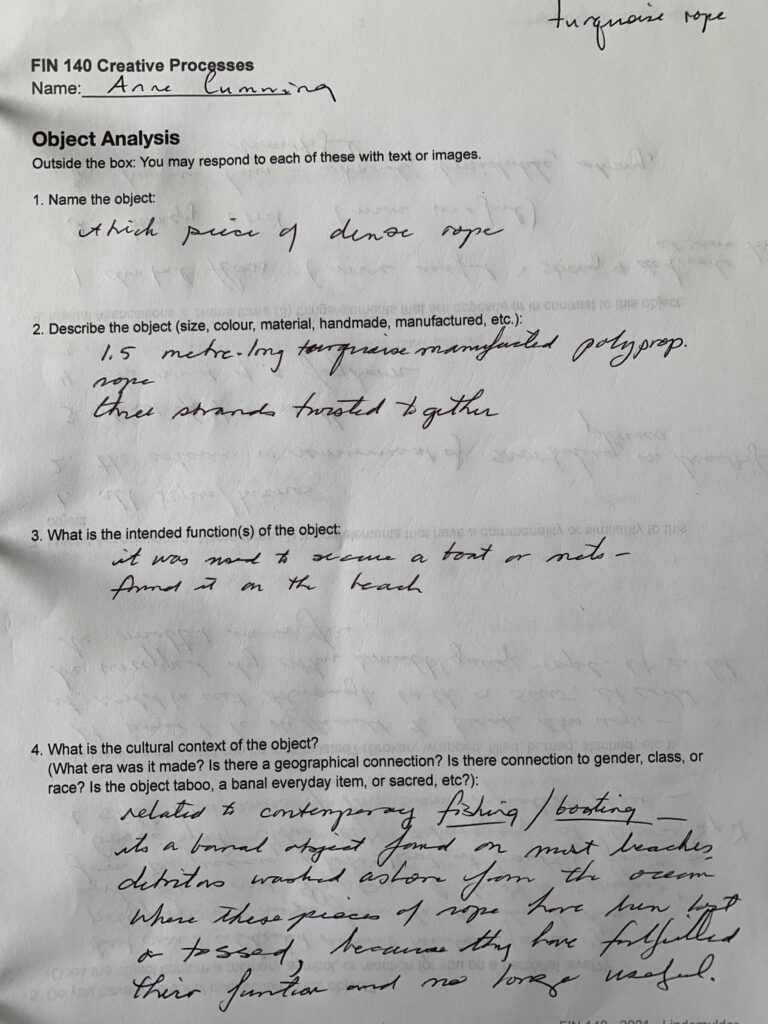 turquoise rope
FIN 140 Creative Processes
Name: Anne Cumming
Object Analysis
Outside the box: You may respond to each of these with text or images.
1. Name the object:
thick piece of dense rope
2. Describe the object (size, colour, material, handmade, manufactured, etc.):
1.5 metre-long turquoise manufacted polyprop.
rope
three strands twisted together
3. What is the intended function(s) of the object:
it was used to secure a boat or nets –
found it on the beach
4. What is the cultural context of the object?
(What era was it made? Is there a geographical connection? Is there connection to gender, class, or
race? Is the object taboo, a banal everyday item, or sacred, etc?):
related to contemporary fishing / boating —
its a banal object found on most beaches,
detritus washed ashore from the ocean
where these pieces of rope have been lost
or tossed, because they have fulfilled
their function and no longer useful.